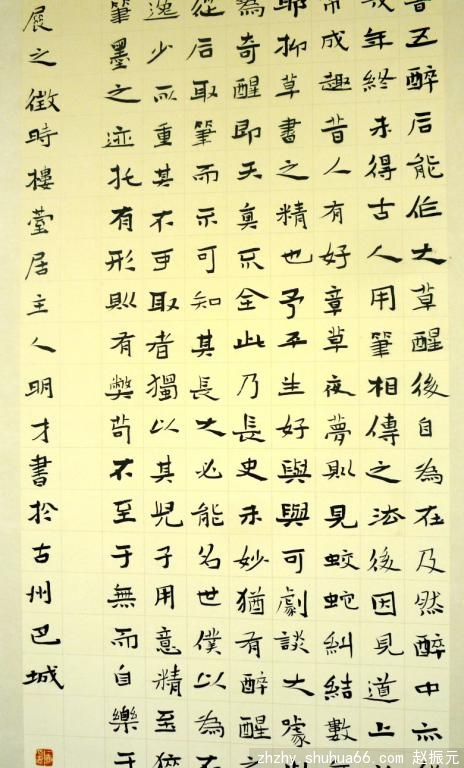 五醉后能作大草醒後自為在及然醉中亦
年終未得古人用筆相傳之法後因見道上
成趣昔人有好章草夜夢則見蛟蛇糾結數
耶抑草書之精也予平生好與與可劇談大噱
為奇醒即天真不全此乃長史未妙猶有醉醒之
從后取筆而不可知其長大必能名世僕以為不
逸少所重其不可取者獨以其兒子用意精至猝
筆墨之迹托有形則有弊苟不至于無而自樂于
展之徵時樓臺居主人明才書於古州巴城
zhzhy.shuhua66.com 赵振元